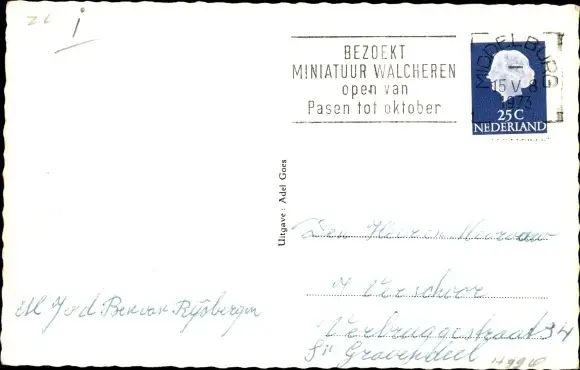 ZL i
BEZOEKT
MINIATUUR WALCHEREN
open van
Pasen tot oktober
MIDDELBURG
15 V 8
1973
25 C
NEDERLAND
Uitgave: Adel Goes
Den Heer en Mevrouw
Verschoor
Verbruggestraat 34
Gravendeel
van Rijsbergen